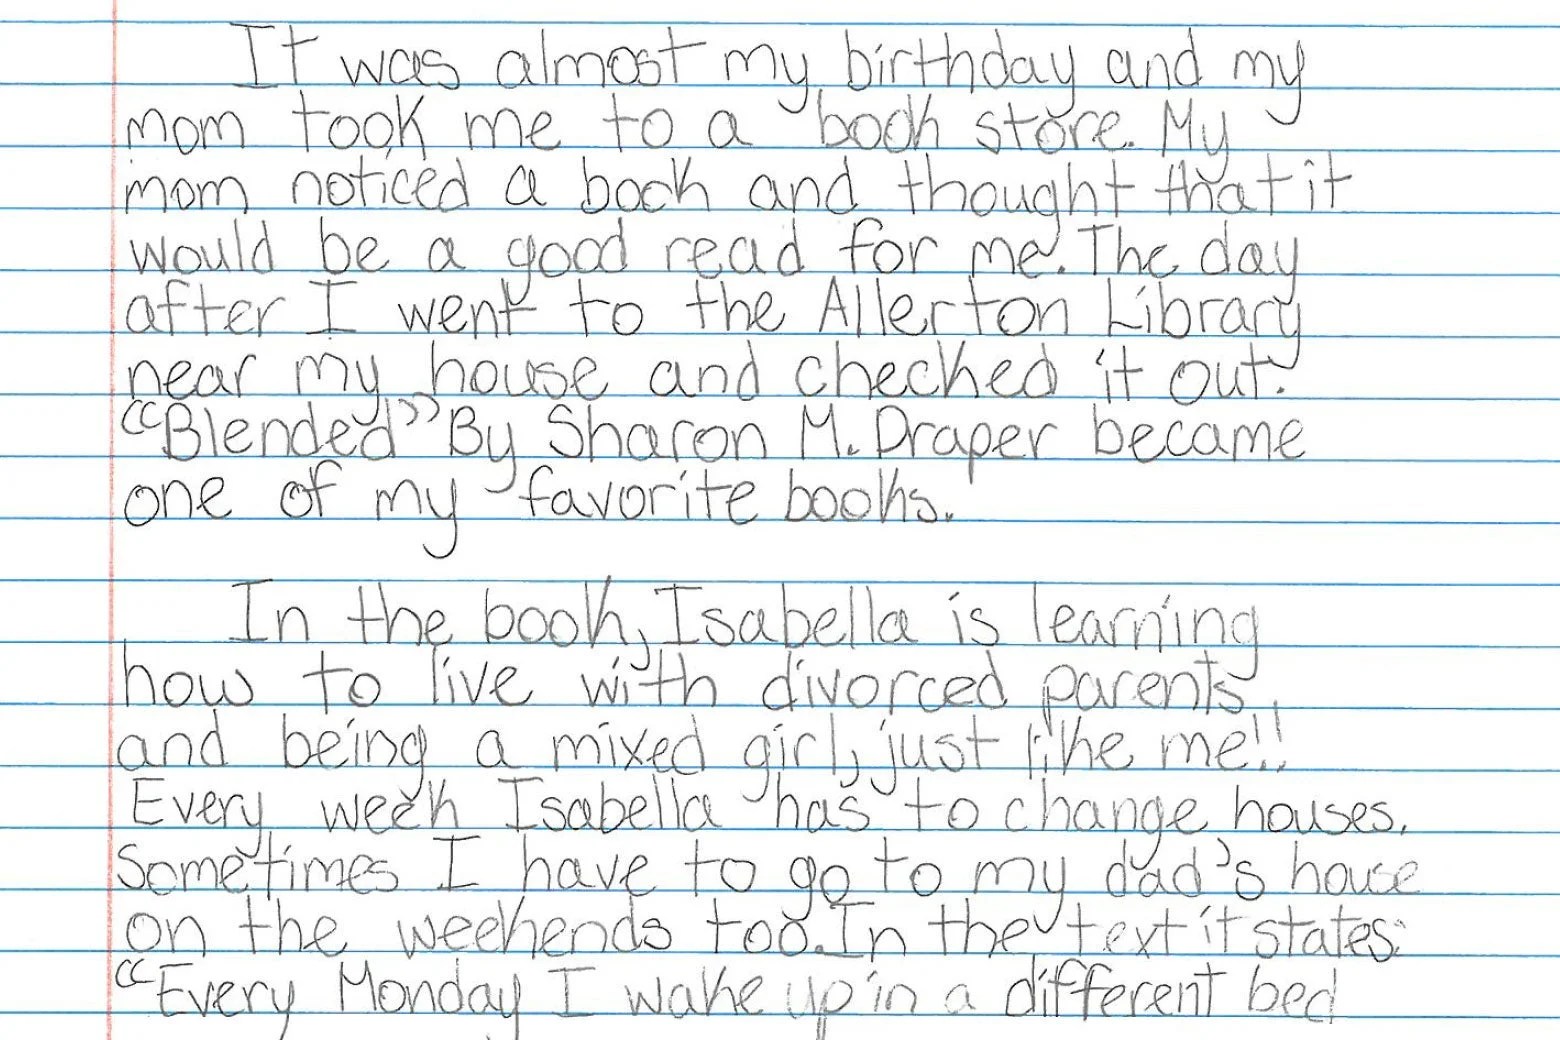 It was almost my birthday and my
mom took me to a book store. My
mom noticed a book and thought that it
would be a good read for me. The day
after I went to the Allerton Library
near my house and checked it out.
"Blended" By Sharon M. Draper became
one of my favorite books.
In the book, Isabella is learning
how to live with divorced parents,
and being a mixed girl, just like me!!
Every week Isabella has to change houses.
Sometimes I have to go to my dad's house
on the weekends too. In the text it states:
"Every Monday I wake up in a different bed